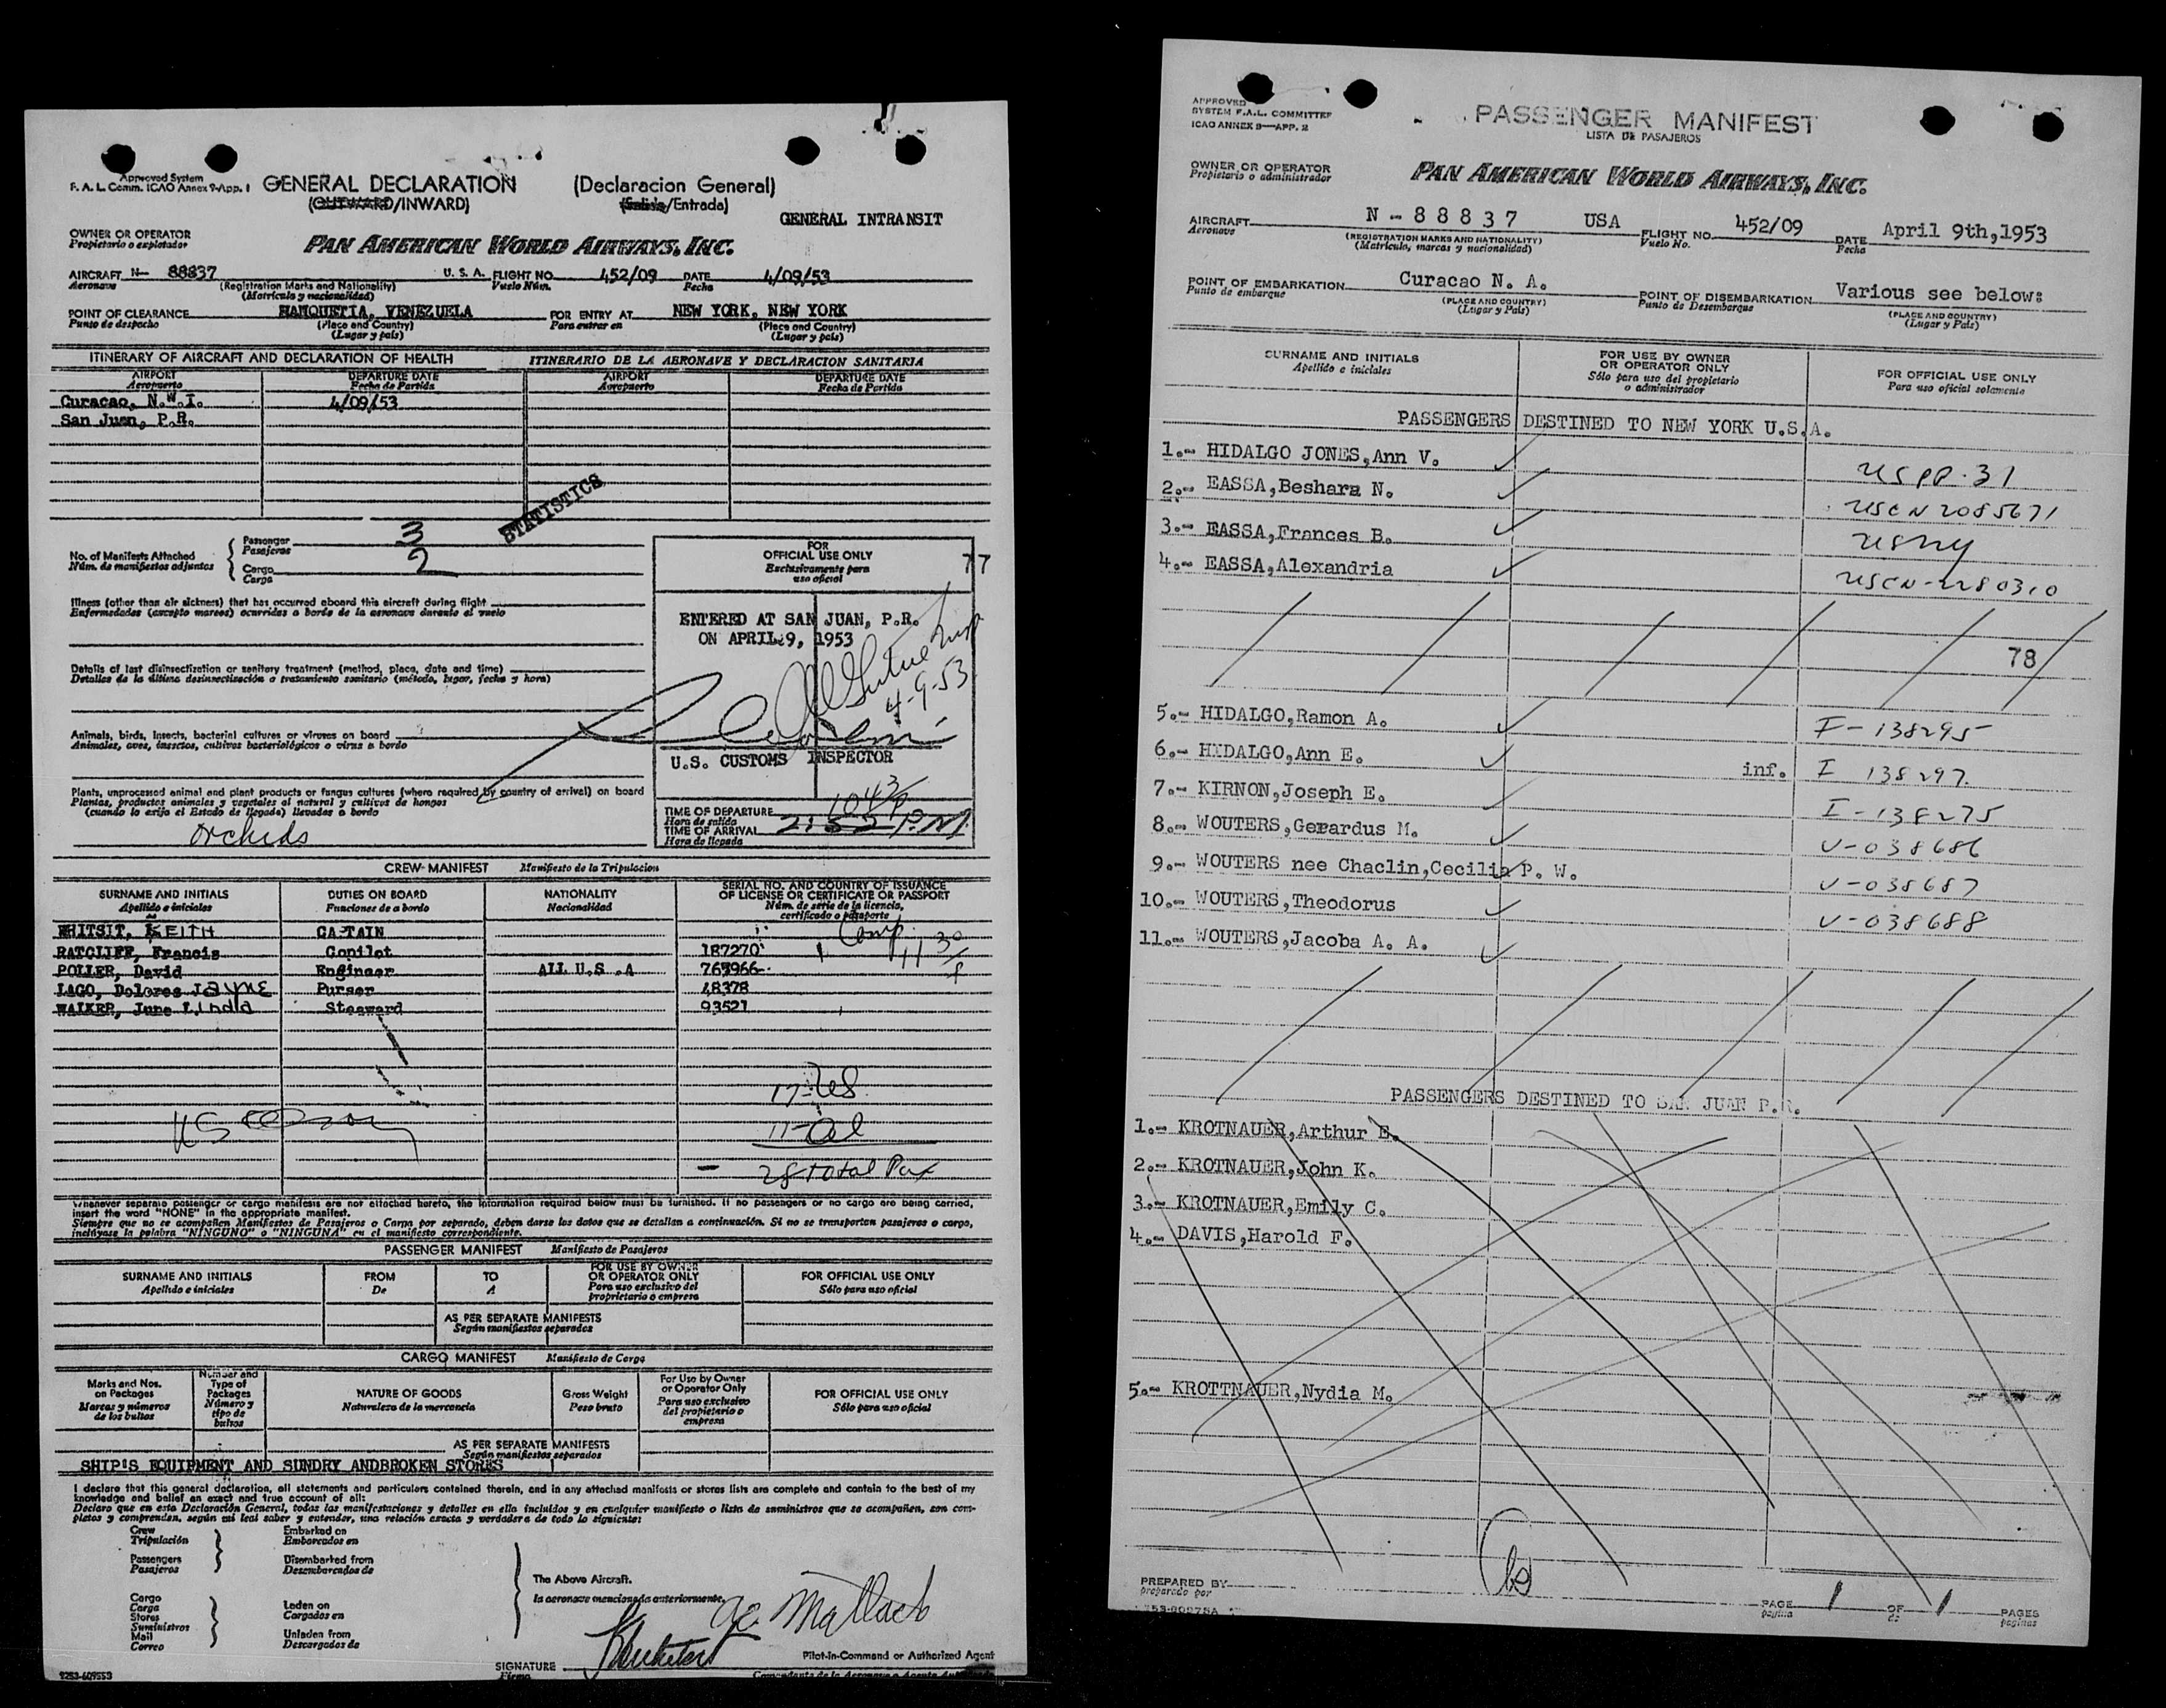 Approved System
F. A. L. Comm. ICAO Annex 9-App. 1
GENERAL DECLARATION
(Declaracion General)
(OUTWARD/INWARD)
(Salida/Entrada)
GENERAL INTRANSIT
OWNER OR OPERATOR
Propietario o explotador
PAN AMERICAN WORLD AIRWAYS, INC.
AIRCRAFT N- 88837 U. S. A. FLIGHT NO. 452/09 DATE 4/09/53
Aeronave (Registration Marks and Nationality) Vuelo Núm. Fecha
(Matrícula y nacionalidad)
POINT OF CLEARANCE MAIQUETIA, VENEZUELA FOR ENTRY AT NEW YORK, NEW YORK
Punto de despacho (Place and Country) Para entrar en (Place and Country)
(Lugar y país) (Lugar y país)
ITINERARY OF AIRCRAFT AND DECLARATION OF HEALTH ITINERARIO DE LA AERONAVE Y DECLARACION SANITARIA
AIRPORT DEPARTURE DATE AIRPORT DEPARTURE DATE
Aeropuerto Fecha de Partida Aeropuerto Fecha de Partida
Curacao, N.W.I. 4/09/53
San Juan, P.R.
STATISTICS
No. of Manifests Attached
Núm. de manifiestos adjuntos
Passenger 3
Pasajeros
Cargo 2
Carga
Illness (other than air sickness) that has occurred aboard this aircraft during flight
Enfermedades (excepto mareos) ocurridas a bordo de la aeronave durante el vuelo
Details of last disinsectization or sanitary treatment (method, place, date and time)
Detalles de la última desinsectización o tratamiento sanitario (método, lugar, fecha y hora)
Animals, birds, insects, bacterial cultures or viruses on board
Animales, aves, insectos, cultivos bacteriológicos o virus a bordo
Plants, unprocessed animal and plant products or fungus cultures (where required by country of arrival) on board
Plantas, productos animales y vegetales al natural y cultivos de hongos
(cuando lo exija el Estado de llegada) llevados a bordo
Orchids
FOR
OFFICIAL USE ONLY
Exclusivamente para
uso oficial
77
ENTERED AT SAN JUAN, P.R.
ON APRIL 9, 1953
4-9-53
U.S. CUSTOMS INSPECTOR
TIME OF DEPARTURE 1043/P
Hora de salida
TIME OF ARRIVAL P.M.
Hora de llegada
CREW MANIFEST Manifiesto de la Tripulacion
SURNAME AND INITIALS DUTIES ON BOARD NATIONALITY SERIAL NO. AND COUNTRY OF ISSUANCE
OF LICENSE OR CERTIFICATE OR PASSPORT
Apellido e iniciales Funciones de a bordo Nacionalidad Núm. de serie de la licencia,
certificado o pasaporte
WHITSIT, KEITH CAPTAIN Comp.
RATCLIFF, Francis Copilot 187270 11 30/P
POLLER, David Engineer ALL U.S.A 765966
LAGO, Dolores JAYNE Purser 48378
WALKER, June Linda Steeward 93521
17-US
11-Al
28 Total Pax
Whenever separate passenger or cargo manifests are not attached hereto, the information required below must be furnished. If no passengers or no cargo are being carried,
insert the word "NONE" in the appropriate manifest.
Siempre que no se acompañen Manifiestos de Pasajeros o Carga por separado, deben darse los datos que se detallan a continuación. Si no se transportan pasajeros o cargo,
inclúyase la palabra "NINGUNO" o "NINGUNA" en el manifiesto correspondiente.
PASSENGER MANIFEST Manifiesto de Pasajeros
SURNAME AND INITIALS FROM TO FOR USE BY OWNER
OR OPERATOR ONLY FOR OFFICIAL USE ONLY
Apellido e iniciales De A Para uso exclusivo del
propietario o empresa Sólo para uso oficial
AS PER SEPARATE MANIFESTS
Según manifiestos separados
CARGO MANIFEST Manifiesto de Carga
Marks and Nos.
on Packages
Marcas y números
de los bultos
Number and
Type of
Packages
Número y
tipo de
bultos
NATURE OF GOODS
Naturaleza de la mercancía
Gross Weight
Peso bruto
For Use by Owner
or Operator Only
Para uso exclusivo
del propietario o
empresa
FOR OFFICIAL USE ONLY
Sólo para uso oficial
AS PER SEPARATE MANIFESTS
Según manifiestos separados
SHIP'S EQUIPMENT AND SUNDRY ANDBROKEN STORES
I declare that this general declaration, all statements and particulars contained therein, and in any attached manifests or stores lists are complete and contain to the best of my
knowledge and belief an exact and true account of all:
Declaro que en esta Declaración General, todas las manifestaciones y detalles en ella incluídos y en cualquier manifiesto o lista de suministros que se acompañen, son com-
pletos y comprenden, según mi leal saber y entender, una relación exacta y verdadera de todo lo siguiente:
Crew
Tripulación
Passengers
Pasajeros
Embarked on
Embarcados en
Disembarked from
Desembarcados de
Cargo
Carga
Stores
Suministros
Mail
Correo
Laden on
Cargados en
Unladen from
Descargados de
The Above Aircraft.
la aeronave mencionada anteriormente.
SIGNATURE
Firma
Pilot-in-Command or Authorized Agent
9253-609553
APPROVED
SYSTEM F.A.L. COMMITTEE
ICAO ANNEX 9—APP. 2
PASSENGER MANIFEST
LISTA DE PASAJEROS
OWNER OR OPERATOR
Propietario o administrador
PAN AMERICAN WORLD AIRWAYS, INC.
AIRCRAFT N - 8 8 8 3 7 USA FLIGHT NO. 452/09 DATE April 9th,1953
Aeronave (REGISTRATION MARKS AND NATIONALITY) Vuelo No. Fecha
(Matrícula, marcas y nacionalidad)
POINT OF EMBARKATION Curacao N. A. POINT OF DISEMBARKATION Various see below:
Punto de embarque (PLACE AND COUNTRY) Punto de Desembarque (PLACE AND COUNTRY)
(Lugar y País) (Lugar y País)
SURNAME AND INITIALS
Apellido e iniciales
FOR USE BY OWNER
OR OPERATOR ONLY
Sólo para uso del propietario
o administrador
FOR OFFICIAL USE ONLY
Para uso oficial solamente
PASSENGERS DESTINED TO NEW YORK U.S.A.
1.- HIDALGO JONES,Ann V. US PP. 31
2.- EASSA,Beshara N. USCN 2085671
3.- EASSA,Frances B. USNY
4.- EASSA,Alexandria USCN-2280310
78
5.- HIDALGO,Ramon A. I-138295
6.- HIDALGO,Ann E. inf. I 138297
7.- KIRNON,Joseph E. I-138275
8.- WOUTERS,Gerardus M. V-038686
9.- WOUTERS nee Chaclin,Cecilia P. W. V-038687
10.- WOUTERS,Theodorus V-038688
11.- WOUTERS,Jacoba A. A.
PASSENGERS DESTINED TO SAN JUAN P.R.
1.- KROTNAUER,Arthur E.
2.- KROTNAUER,John K.
3.- KROTNAUER,Emily C.
4.- DAVIS,Harold F.
5.- KROTTNAUER,Nydia M.
PREPARED BY
preparado por
PAGE 1 OF 1 PAGES
página de páginas